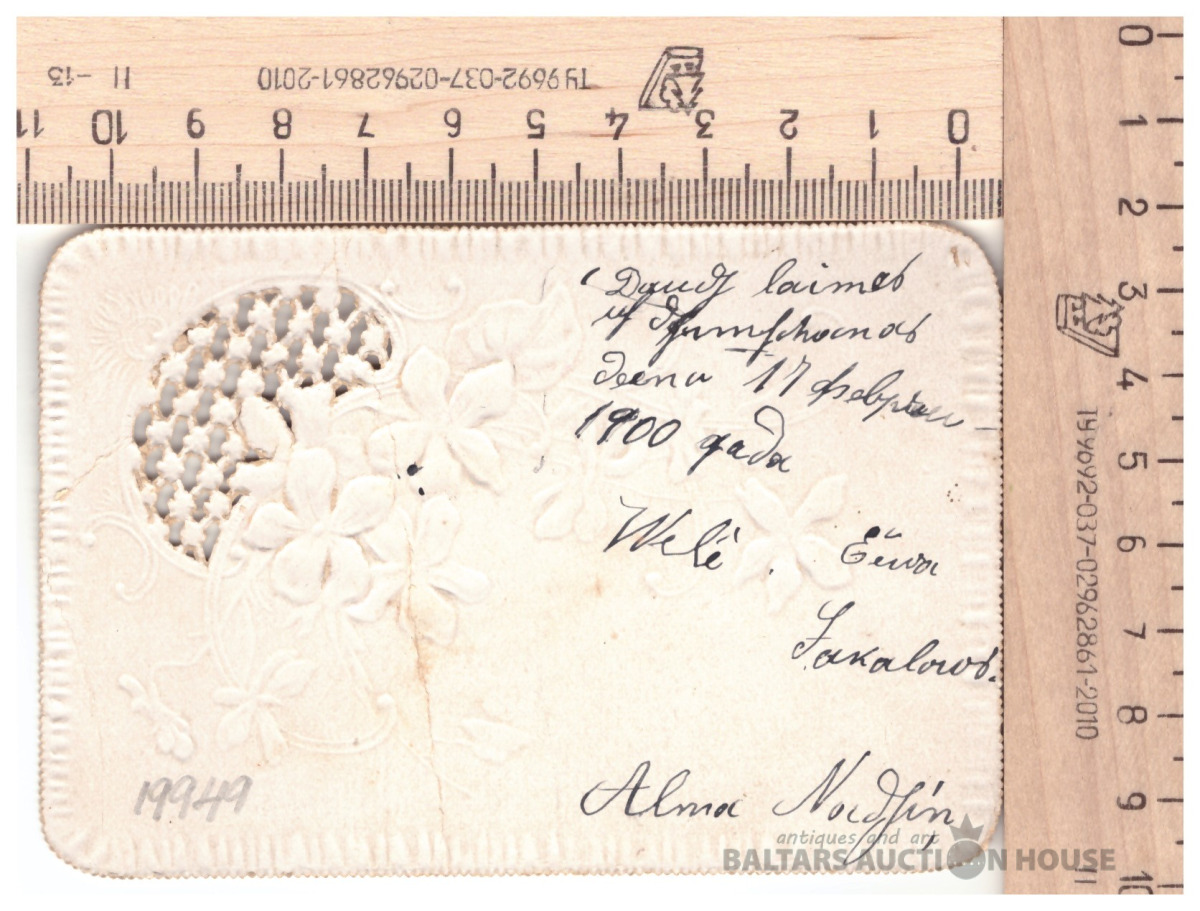 11 - 13
ТУ 9692-037-02962861-2010
11 10 9 8 7 6 5 4 3 2 1 0
Daudſ laimes
uſ dſimſchanas
deena 17 февраля
1900 года
Welē Ēwa
Sakalows.
Alma Nadſin
19949
antiques and art
BALTARS AUCTION HOUSE
0
1
2
3
4
5
6
7
8
9
10
11
ТУ 9692-037-02962861-2010